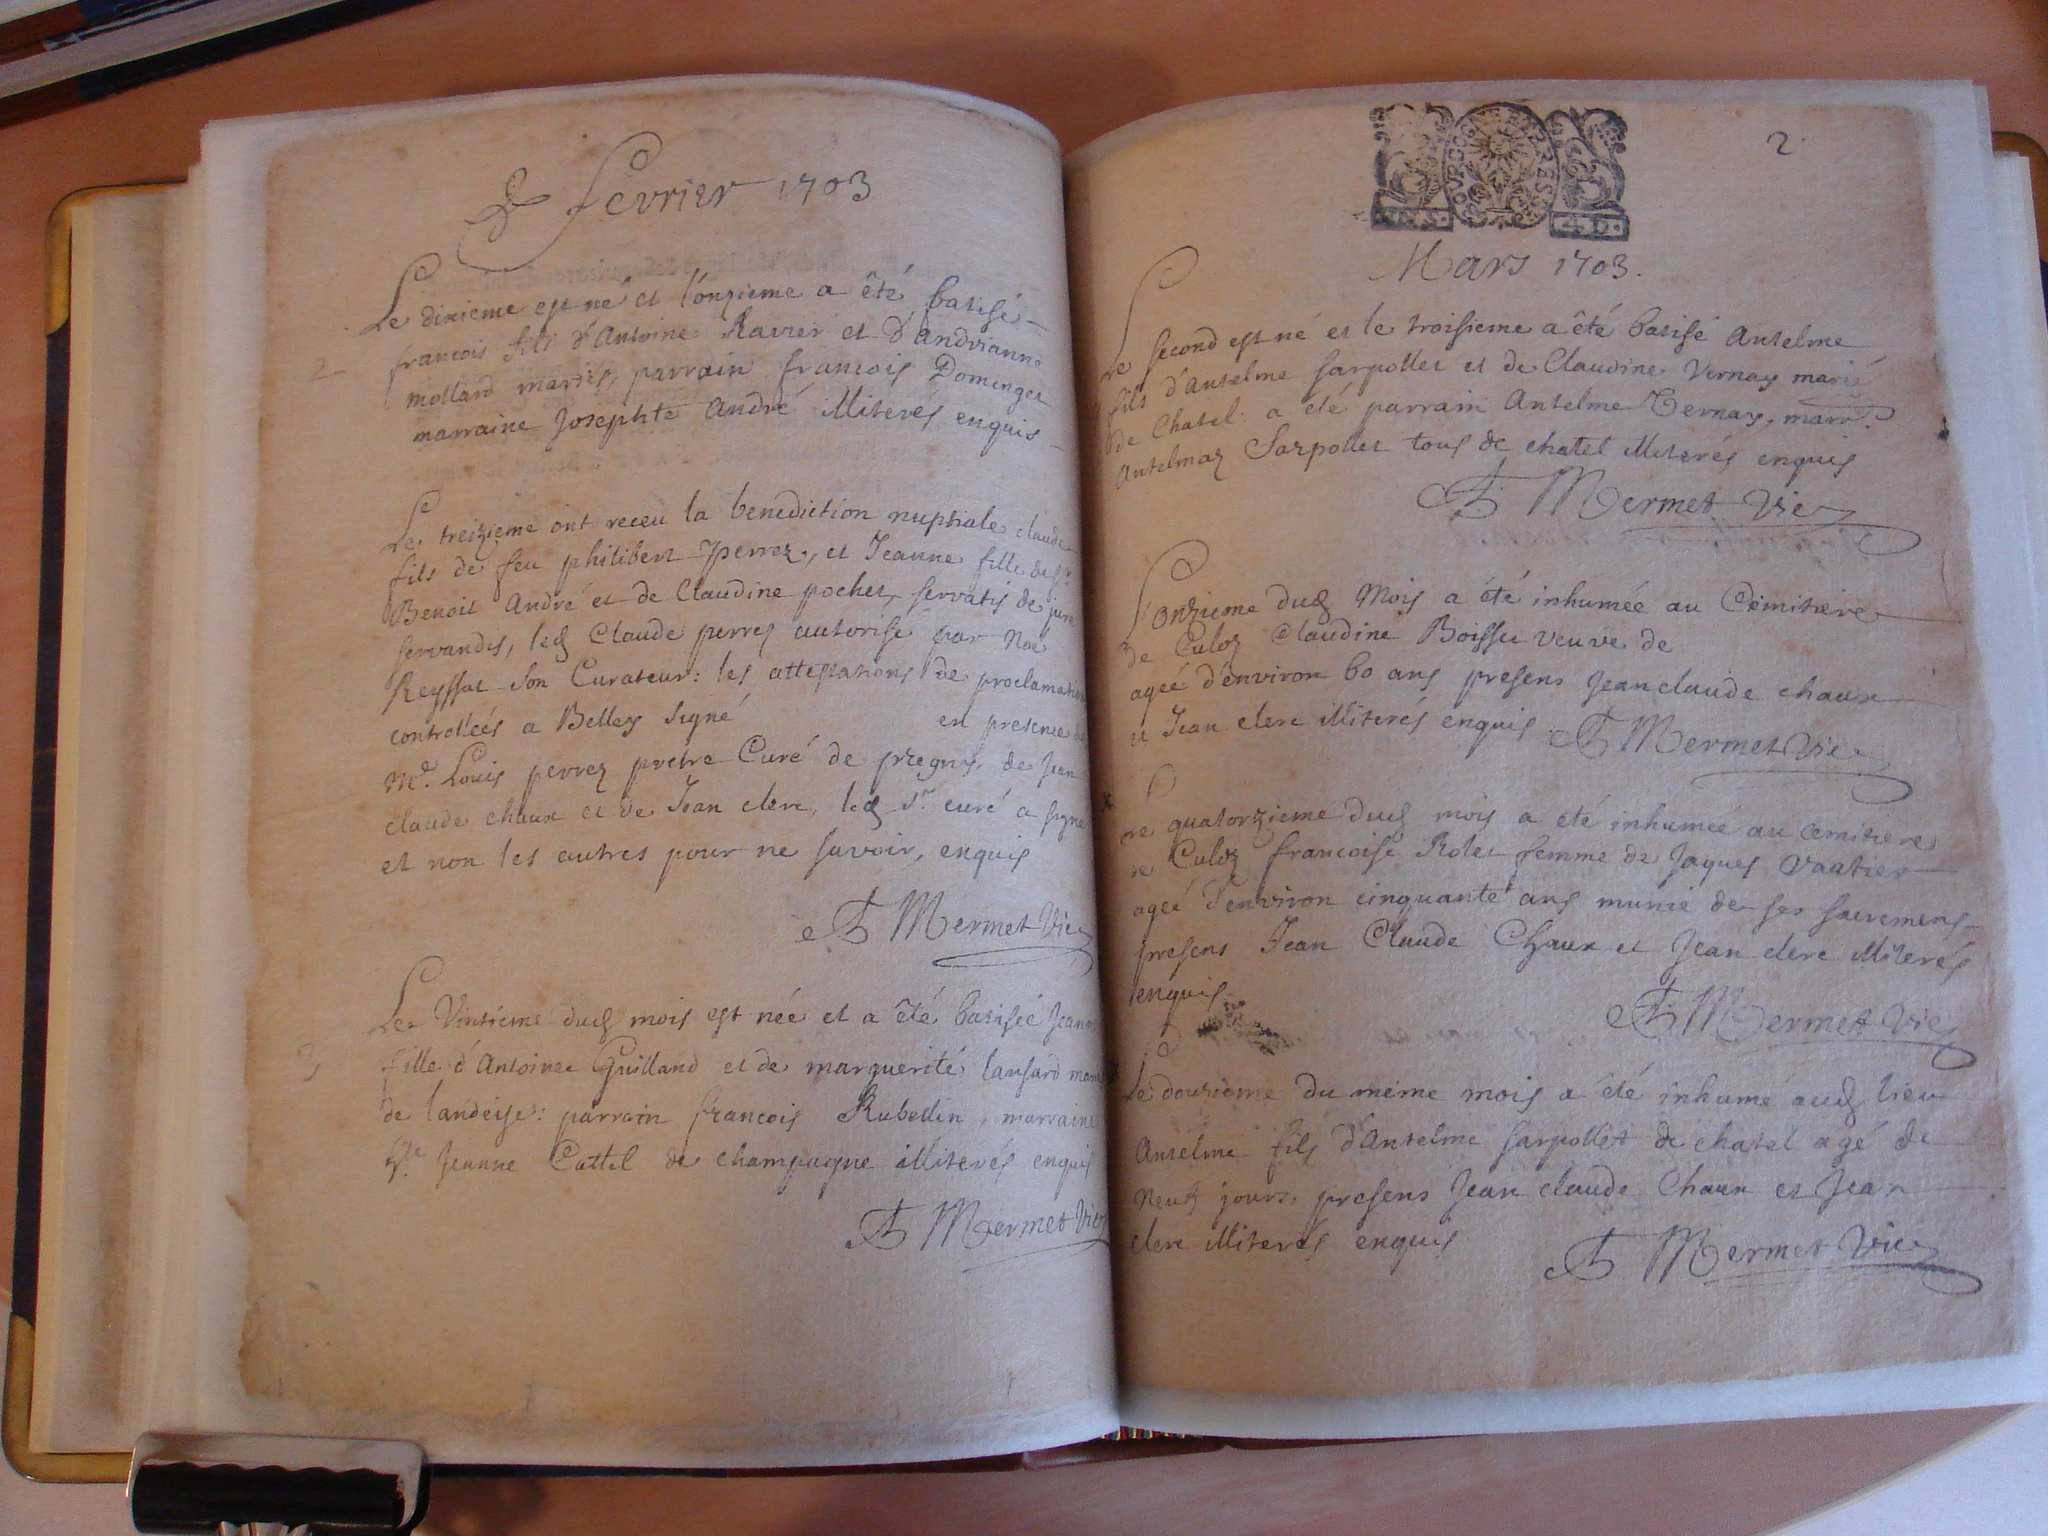 fevrier 1703
Le dixieme est né et l'onzieme a êté batisé
francois fils d'Antoine Ravier et d'Andrianne
mollard mariés, parrain francois Domenget
marraine Josephte André illiterés enquis
2
Le treizieme ont receu la benediction nuptiale claude
fils de feu philibert perrez, et Jeanne fille de Sr
Benoit André et de Claudine pochet, servatis de jure
servandis, led Claude perrez autorisé par Noé
Reyssat son Curateur: les attestations de proclamation
controllées a Belley signé en presence de
Mre Louis perrez pretre Curé de pregny, de Jean
claude chaux et de Jean clerc, led sr curé a signé
et non les autres pour ne savoir, enquis
Mermet Vic
Le Vintieme dud mois est née et a êté batisée Jeanne
3
fille d'Antoine Guilland et de marguerite lansard mariés
de landeise: parrain francois Rubellin, marraine
Jeanne Cattel de champagne illiterés enquis
Mermet Vic
2
Mars 1703.
Le second est né et le troisieme a êté batisé Antelme
fils d'Antelme sarpollet et de Claudine Vernay mariés
de Chatel: a été parrain Antelme Vernay, marr.
Antelmaz Sarpollet tous de chatel illiterés enquis
Mermet Vic
L'onzieme dud Mois a été inhumée au Cemitiere
de Culoz Claudine Boissu veuve de
ageé d'environ 60 ans presens Jean claude chaux
et Jean clerc illiterés enquis
Mermet Vic
Le quatorzieme dud mois a été inhumée au cemitiere
de Culoz francoise Rolet femme de Jaques Vautier
ageé d'environ cinquante ans munie de ses sacremens
presens Jean Claude Chaux et Jean clerc illiterés
enquis
Mermet Vic
Le douzieme du même mois a été inhumé aud lieu
Antelme fils d'Antelme sarpollet de chatel agé de
Neuf jours, presens Jean claude Chaux et Jean
clerc illiterés enquis
Mermet Vic